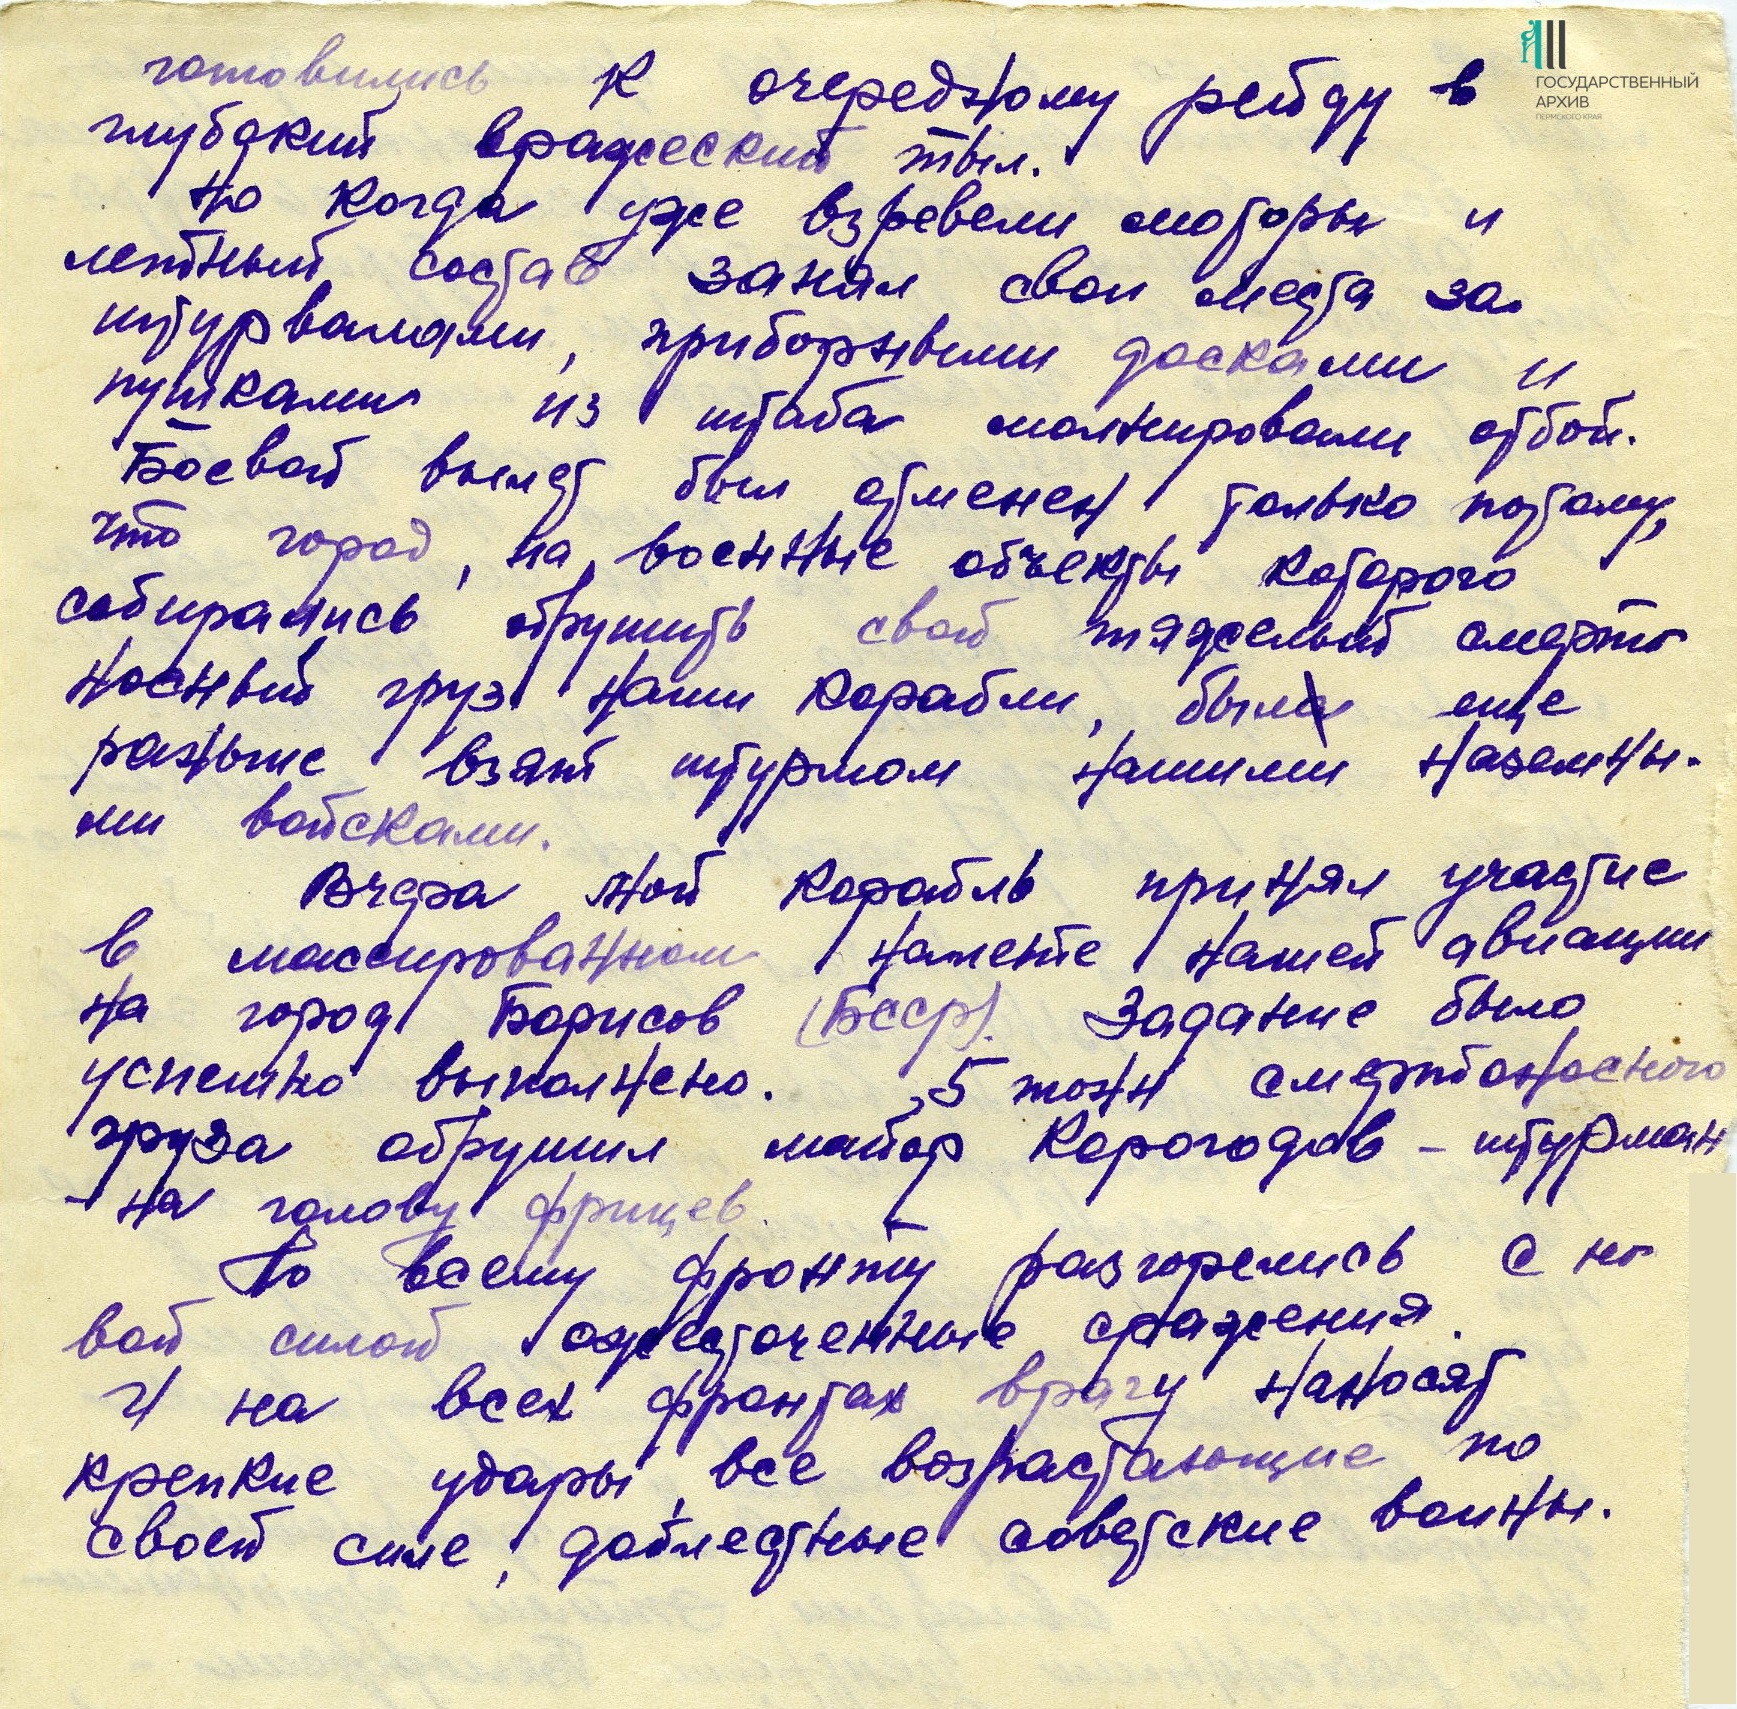 ГОСУДАРСТВЕННЫЙ
АРХИВ
ПЕРМСКОГО КРАЯ
готовились к очередному рейду в
глубокий вражеский тыл.
Но когда уже взревели моторы и
летный состав занял свои места за
штурвалами, приборными досками и
пушками из штаба молнировали отбой.
Боевой вылет был отменен только потому,
что город, на военные объекты которого
собирались обрушить свой тяжелый смерто
носный груз наши корабли, был еще
раньше взят штурмом нашими наземны-
ми войсками.
Вчера мой корабль принял участие
в массированном налете нашей авиации
на город Борисов (БССР). Задание было
успешно выполнено. 5 тонн смертоносного
груза обрушил майор Корогодов - штурман
- на голову фрицев.
По всему фронту разгорелись с но-
вой силой ожесточенные сражения.
И на всех фронтах врагу наносят
крепкие удары, все возрастающие по
своей силе, доблестные советские воины.